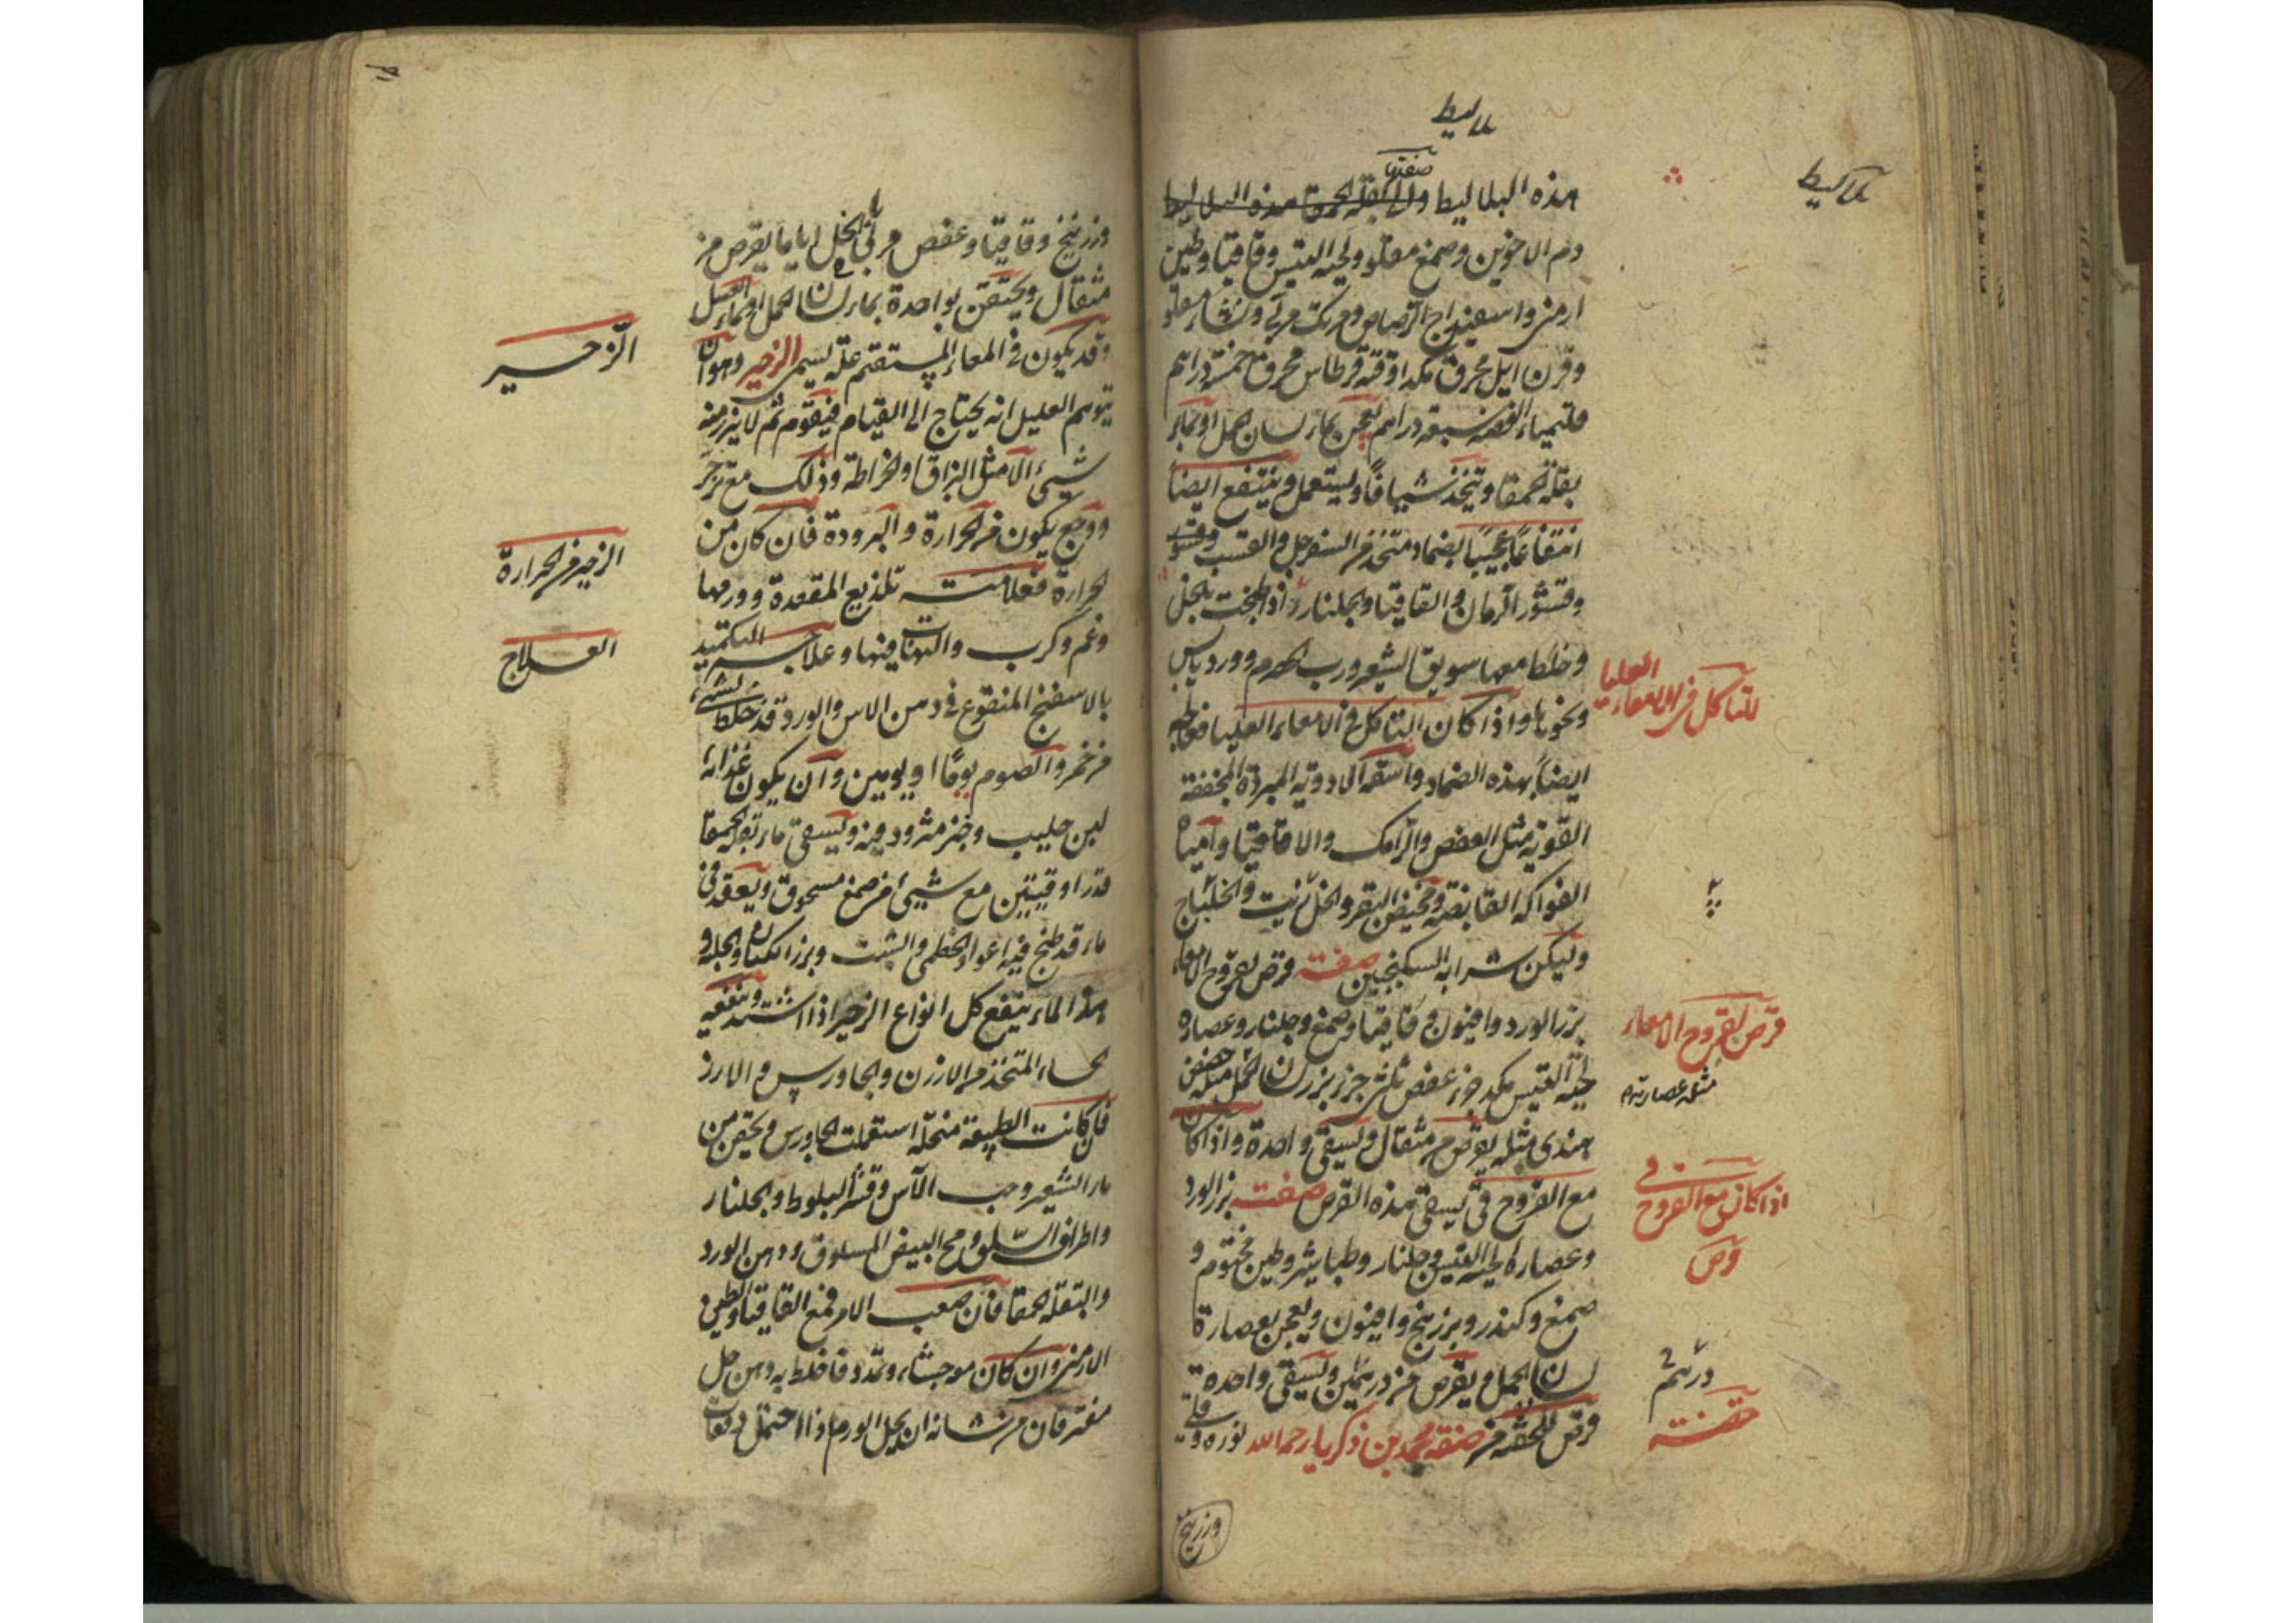 بلاليط
بلاليط
صفتها
هذه البلاليط ولا بقلة الحمقا هذه البلاليط
دم الاخوين وصمغ مقلو ولحية التيس وقاقيا وطين
ارمني واسفيداج الرصاص ومرتك مربى ونشا مقلو
وقرن ايل محرق مكد اوقية قرطاس محرق خمسة دراهم
قليمياء الفضة سبعة دراهم يعجن بماء لسان الحمل او بماء
بقلة الحمقا ويتخذ شيافا ويستعمل وينتفع ايضا
انتفاعا عجيبا بضماد متخذ من السفرجل والقسب وقشور
وقشور الرمان والقاقيا والجلنار اذا طبخت بالخل
وخلط معها سويق الشعير ورب الحصرم وورد يابس
ونحوها واذا كان التاكل في الامعاء العليا فعالجه
للتاكل في الامعاء العليا
ايضا بهذه الضماد واسقه الادوية المبردة المجففة
القوية مثل العفص والرامك والاقاقيا واميا
الفواكه القابضة ومخيض البقر والخل زيت والخلباج
وليكن شرابه السكنجبين صفة قرص لقروح الامعاء
بزر الورد وافيون وقاقيا وصمغ وجلنار وعصاره
قرص لقروح الامعاء
لحية التيس مكد جزء عفص ثلثي جزء بزر لسان الحمل مثله حضض
مثله عصارته
هندي مثله يقرص من مثقال ويسقى واحدة واذا كان
مع القروح قي يسقى هذه القرص صفته بزر الورد
اذا كان مع القروح قي
قرص
وعصاره لحية التيس وجلنار وطباشير وطين مختوم و
صمغ وكندر وبزر بنج وافيون ويعجن بعصارة
لسان الحمل ويقرص من درهمين ويسقى واحدة
درهم
قرص للحقنة من صنعة محمد بن زكريا رحمه الله نوره وقلي
حقنة
وزرنيخ
وزرنيخ وقاقيا وعفص مربى بالخل اياما يقرص من
مثقال ويحتقن بواحدة بماء لسان الحمل او بماء العسل
وقد يكون في المعاء المستقيم علة يسمى الزحير وهو ان
الزحير
يتوهم العليل انه يحتاج الى القيام فيقوم ثم لا يبرز منه
شيئ الا مثل البزاق او الخراطة وذلك مع تزحر
ووجع يكون من الحرارة والبرودة فان كان من
الزحير من الحرارة
الحرارة فعلامته تلذيع المقعدة وورمها
وغم وكرب والتهاب فيها وعلاجه التكميد
العلاج
بالاسفنج المنقوع في دهن الاس والورد قد خلط بشيء
من خمر والصوم يوما او يومين وان يكون غذائه
لبن حليب وخبز مثرود فيه ويسقى ماء بقلة الحمقا
قدر اوقيتين مع شيئ من صمغ مسحوق ويقعد في
ماء قد طبخ فيه اعواد الخطمي والشبت وبزر الكتان والحلبة و
هذا الماء ينفع كل انواع الزحير اذا اشتد وينفعه
الحساء المتخذ من الارزن والجاورس والارز
فان كانت الطبيعة منحلة استعملت الجاورس ويحقن من
ماء الشعير وحب الآس وقشر البلوط والجلنار
واطراف السلق ومح البيض المسلوق ودهن الورد
والبقلة الحمقا فان صعب الامر فمع القاقيا والطين
الارمني وان كان موحشا وتمدد فاخلط به دهن حل
مفتر فان من شانه ان يحل الورم اذا احتمل دفعات